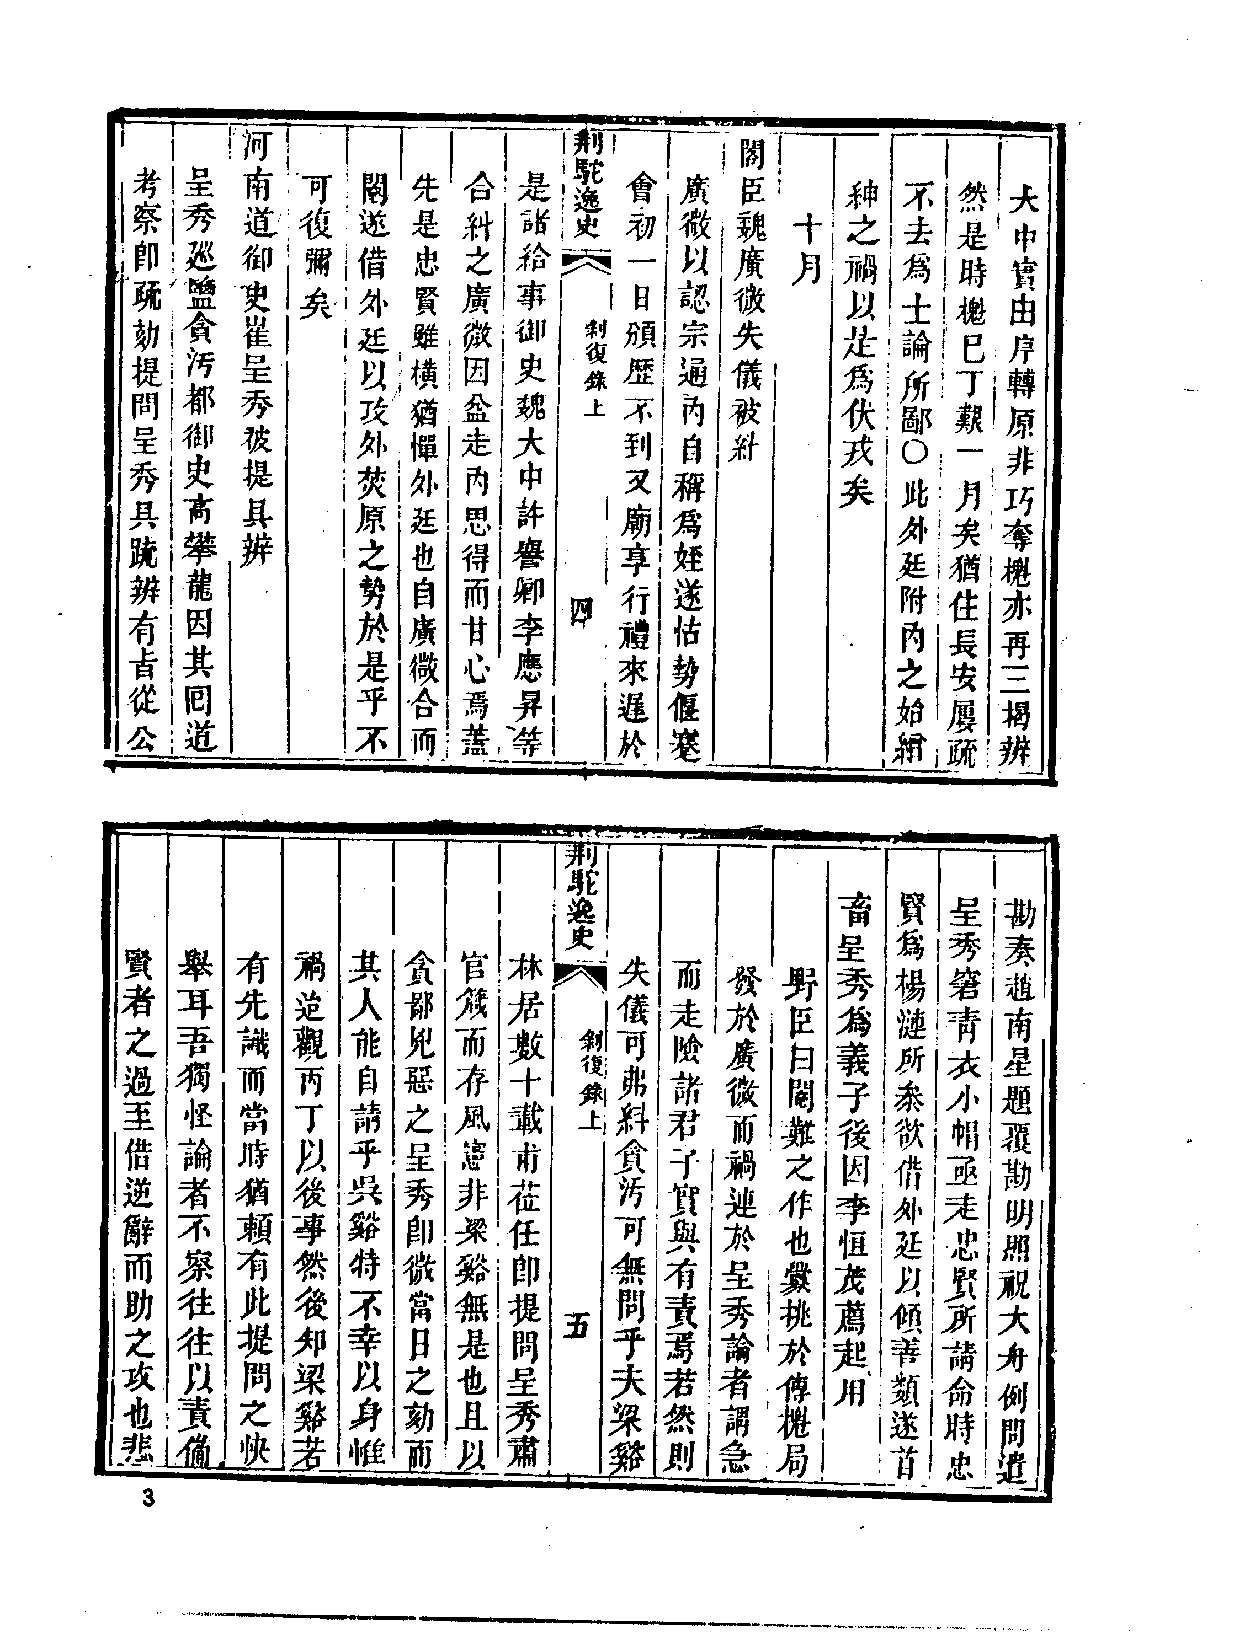 大中實由序轉原非巧奪櫆亦再三揭辨
然是時櫆已丁艱一月矣猶住長安屢疏
不去爲士論所鄙〇此外廷附內之始縉
紳之禍以是爲伏戎矣
十月
閣臣魏廣微失儀被糾
廣微以認宗通內自稱爲姪遂怙勢偃蹇
會初一日頒歷不到又廟享行禮來遲於
荆駝逸史
剝復錄上
四
是諸給事御史魏大中許譽卿李應昇等
合糾之廣微因益走內思得而甘心焉蓋
先是忠賢雖橫猶憚外廷也自廣微合而
閹遂借外廷以攻外焚原之勢於是乎不
可復彌矣
河南道御史崔呈秀被提具辨
呈秀廵鹽貪污都御史高攀龍因其囘道
考察卽疏劾提問呈秀具疏辨有旨從公
勘奏趙南星題覆勘明照祝大舟例問遣
呈秀窘靑衣小帽亟走忠賢所請命時忠
賢爲楊漣所叅欲借外廷以傾善類遂首
畜呈秀爲義子後因李恒茂薦起用
野臣曰閹難之作也釁挑於傅櫆局
發於廣微而禍連於呈秀論者謂急
而走險諸君子實與有責焉若然則
失儀可弗糾貪污可無問乎夫梁谿
荆駝逸史
剝復錄上
五
林居數十載甫莅任卽提問呈秀肅
官箴而存風憲非梁谿無是也且以
貪鄙兇惡之呈秀卽微當日之劾而
其人能自請乎吳谿特不幸以身惟
禍迨觀丙丁以後事然後知梁谿若
有先識而當時猶賴有此提問之快
舉耳吾獨怪論者不察往往以責備
賢者之過至借逆辭而助之攻也悲
3